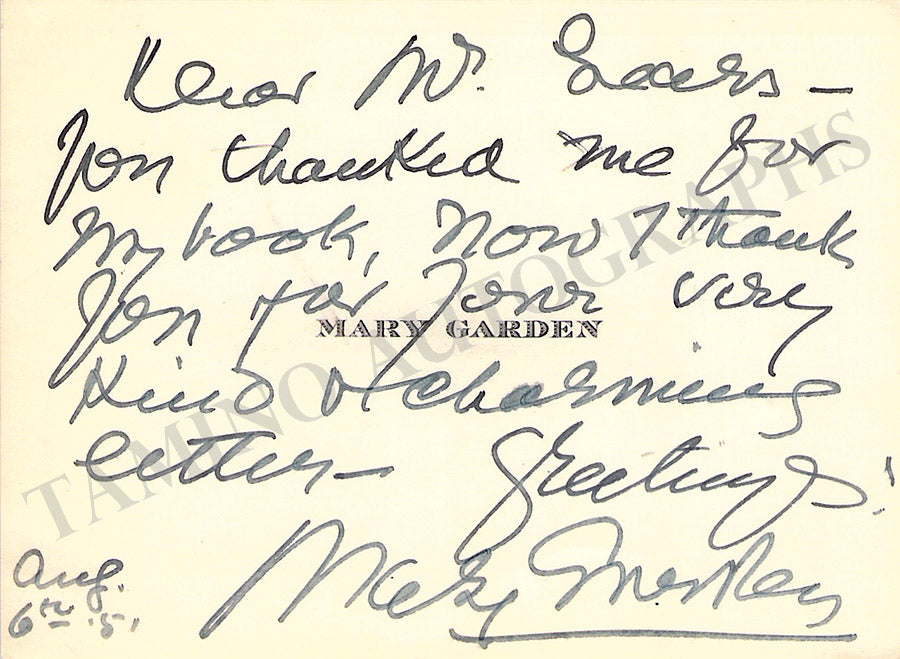 Dear Mr. –
You thanked me for
my book, Now I thank
you for your very
MARY GARDEN
kind & charming
letter – Greetings!
Mary Garden
Aug.
6th '51
TAMINO AUTOGRAPHS